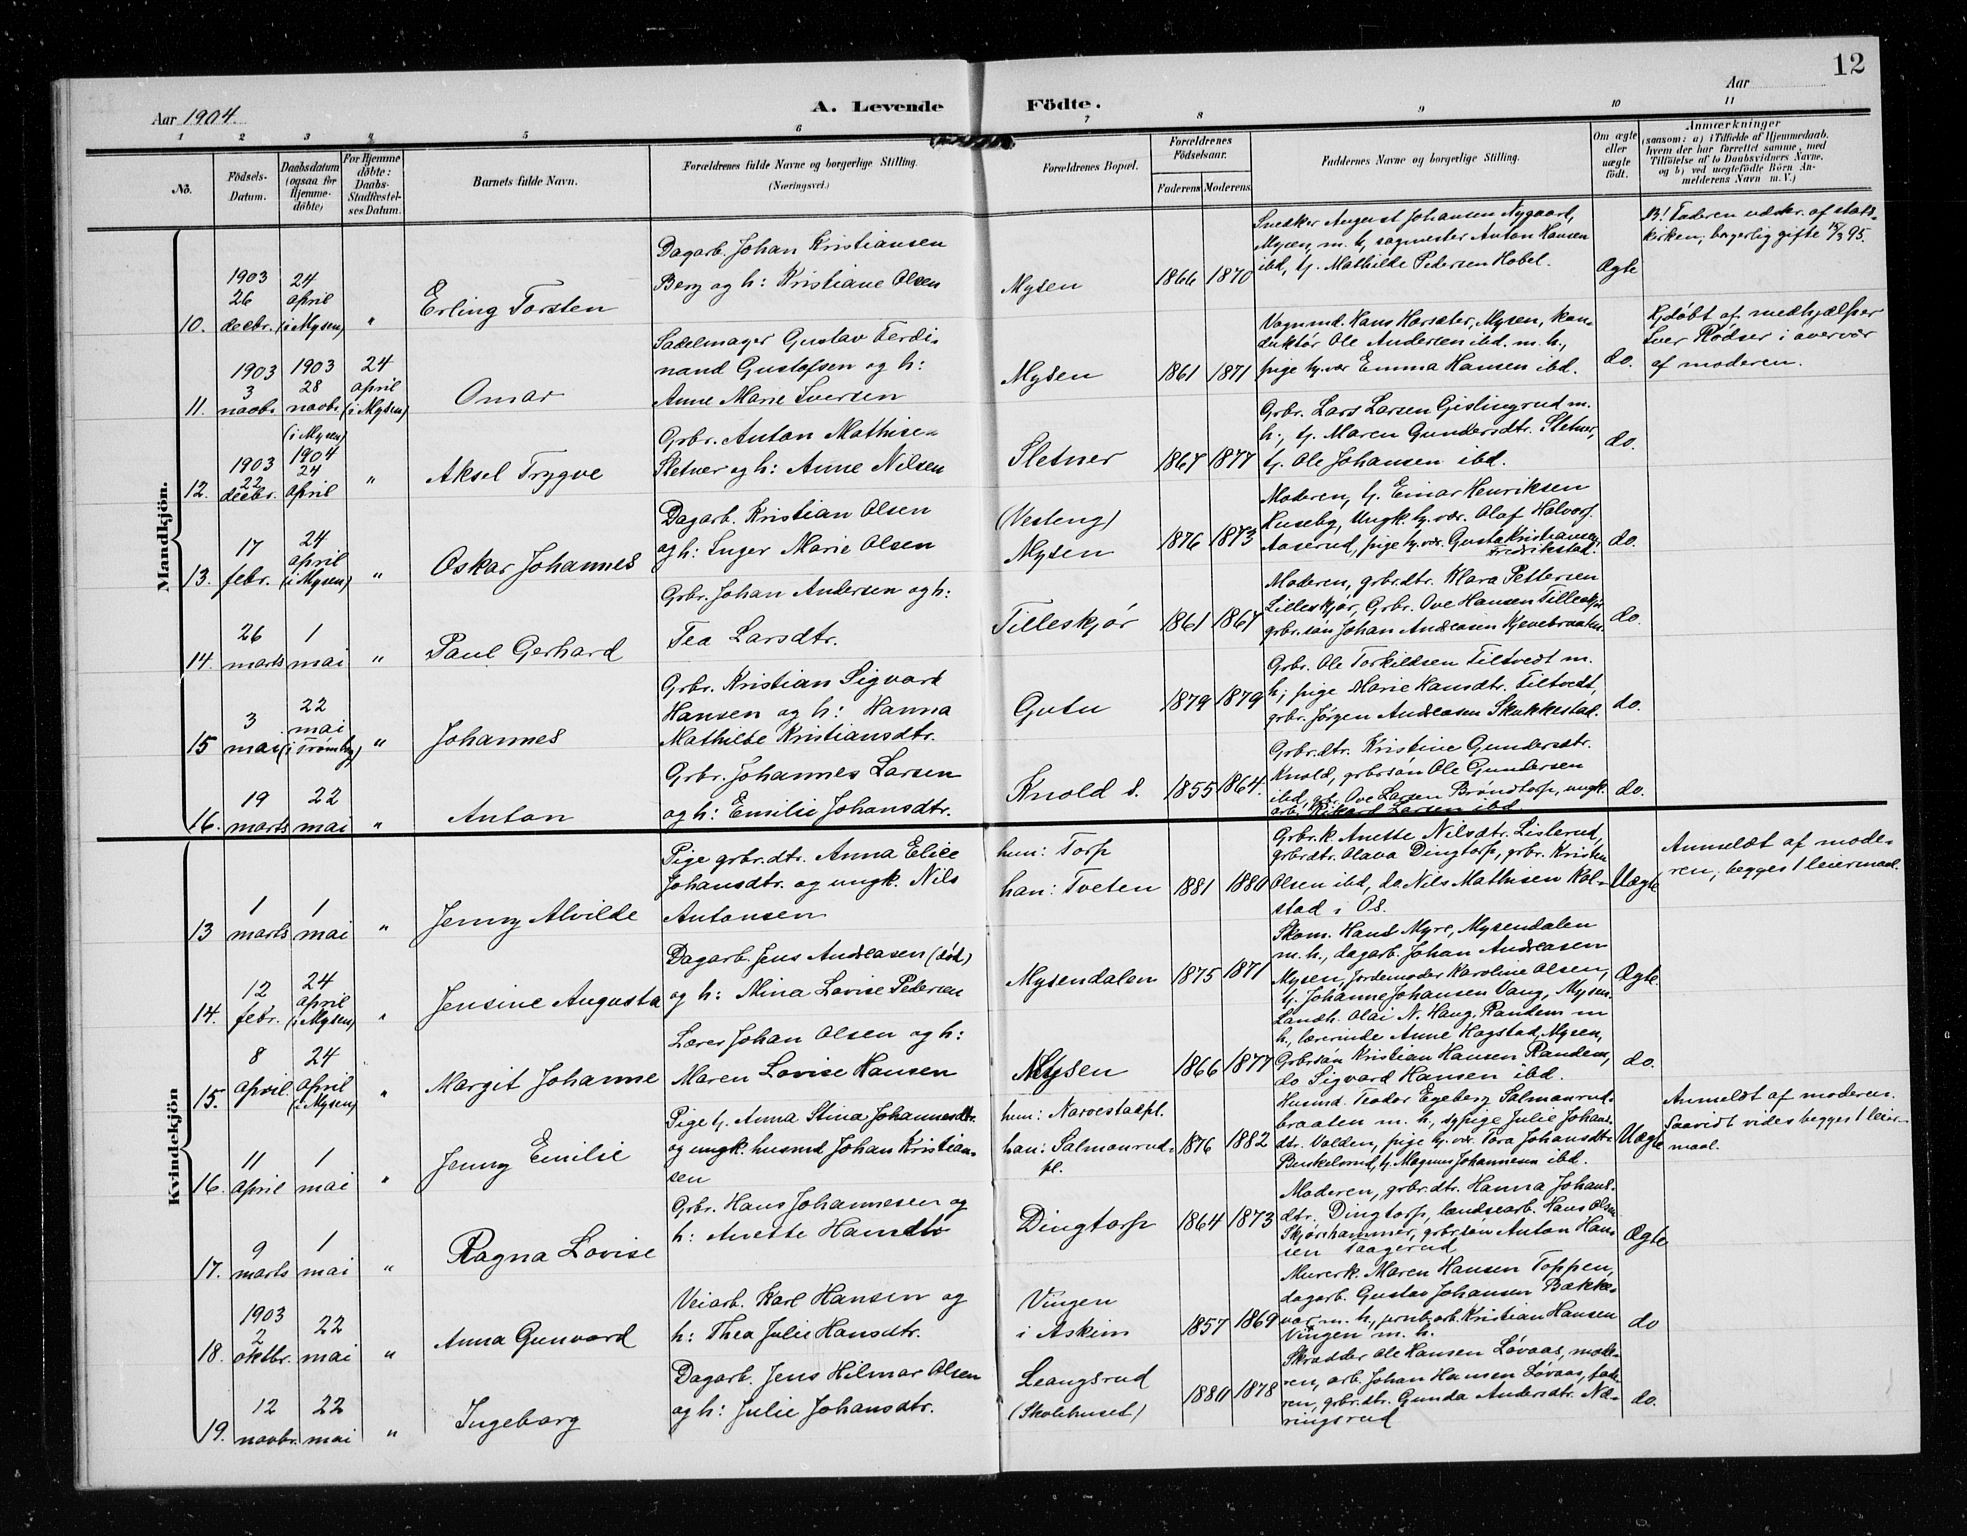 12
Aar 1904.
A. Levende Födte.
Aar
1 2 3 4 5 6 7 8 9 10 11
No.
Födsels-Datum.
Daabsdatum (ogsaa for Hjemme-döbte)
For Hjemme döbte: Daabs-Stadfæstel-ses Datum.
Barnets fulde Navn.
Forældrenes fulde Navne og borgerlige Stilling. (Næringsvei.)
Forældrenes Bopæl.
Forældrenes Födselsaar.
Faderens Moderens
Faddernes Navne og borgerlige Stilling.
Om ægte eller uægte födt.
Anmærkninger
(saasom: a) i Tilfælde af Hjemmedaab, hvem der har forrettet samme, med Tilföielse af to Daabsvidners Navne, og b) ved uægtefödte Börn An-melderens Navn m. V.)
Mandkjön.
10.
1903 26 decbr.
24 april (i Mysen)
"
Erling Torsten
Dagarb. Johan Kristiansen
Berg og h: Kristiane Olsen
Mysen
1866 1870
Snedker August Johansen Nygaard,
Mysen, m. h, sagmester Anton Hansen
ibd, g. Mathilde Pedersen Hobøl.
Ægte
NB! Faderen udskr. af stats-
kirken; borgerlig gifte 15/3 95.
11.
1903 3 novbr.
1903 28 novbr. (i Mysen)
24 april (i Mysen)
Omar
Sadelmager Gustav Ferdi-
nand Gustafsen og h:
Anne Marie Iversen
Mysen
1861 1871
Vognmd. Hans Harsæter, Mysen, kon-
duktør Ole Andersen ibd. m. h.,
pige tj.vær Emma Hansen ibd.
do.
Hjdøbt af medhjælper
Iver Flødser i overvær
af moderen.
12.
1903 22 decbr.
1904 24 april
"
Aksel Trygve
Grbr. Anton Mathisen
Sletner og h: Anne Nilsen
Sletner
1867 1877
Grbr. Lars Larsen Gislingrud m.
h., g. Maren Gundersdtr. Sletner,
g. Ole Johansen ibd.
do.
13.
17 febr.
24 april (i Mysen)
"
Oskar Johannes
Dagarb. Kristian Olsen
og h: Inger Marie Olsen
(Vesteng) Mysen
1876 1873
Moderen, g. Einar Henriksen
Huseby, Ungk. tj.vær. Olaf Halvors.
Aaserud, pige tj.vær. Gusta Kristiansen,
Fredrikstad.
do.
14.
26 marts
1 mai
"
Paul Gerhard
Grbr. Johan Andersen og h:
Tea Larsdtr.
Tilleskjør
1861 1867
Moderen, grbr.dtr. Klara Pettersen
Lilleskjør, Grbr. Ove Hansen Tilleskjør
grbr.søn Johan Andreasen Kjevebraaten.
do.
15
3 mai
22 mai (i Trømborg)
"
Johannes
Grbr. Kristian Sigvard
Hansen og h: Hanna
Mathilde Kristiansdtr.
Gutu
1879 1879
Grbr. Ole Torkildsen Tiltvedt m.
h; pige Marie Hansdtr. Tiltvedt,
grbr. Jørgen Andreasen Skakkestad.
do.
16.
19 marts
22 mai
"
Anton
Grbr. Johannes Larsen
og h: Emilie Johansdtr.
Knold s.
1855 1864.
Grbr.dtr. Kristine Gundersdtr.
Knold, grbrsøn Ole Gundersen
ibd, gr. Ove Larsen Brøndtorp, ungk.
arb. Rikard Larsen ibd
do.
Kvindekjön
13
1 marts
1 mai
"
Jenny Alvilde
Pige grbr.dtr. Anna Elise
Johansdtr. og ungk. Nils
Antonsen
hun: Torp
han: Tveten
1881 1880
Grbr.k. Anette Nilsdtr. Listerud,
grbrdtr. Olava Dingtorp, grbr. Kristen
Olsen ibd, do Nils Mathisen Kol-
stad i Ø.s.
Uægte
Anmeldt af mode-
ren; begges 1 leiermaal.
14.
12 febr.
24 april (i Mysen)
"
Jensine Augusta
Dagarb. Jens Andreasen (død)
og h: Mina Lovise Pedersen
Mysendalen
1875 1871
Skom. Hans Myre, Mysendalen
m. h., dagarb. Johan Andreasen
Mysen, Jordemoder Karoline Olsen,
g. Johanne Johansen Vang, Mysen.
Ægte
15.
8 april.
24 april (i Mysen)
"
Margit Johanne
Lærer Johan Olsen og h:
Maren Lovise Hansen
Mysen
1866 1877
Landh. Olai N. Haug, Randem m
h., lærerinde Anne Hagstad, Mysen,
Grbrsøn Kristian Hansen Randem,
do Sigvard Hansen ibd.
do.
16.
11 april
1 mai
"
Jenny Emilie
Pige g. Anna Stina Johannesdtr.
og ungk. husmd Johan Kristian-
sen
hun: Narvestadpl.
han: Salmonrud-
pl.
1876 1882
Husmd. Teodor Egeberg Salmonrud-
braaten m. h, sypige Julie Johans-
dtr. Volden, pige tj.vær. Tora Johansdtr.
Buskelsrud, g. Magnus Johannesen ibd.
Uægte
Anmeldt af moderen.
Saavidt vides begges 1 leier-
maal.
17.
9 marts
1 mai
"
Ragna Lovise
Grbr. Hans Johannesen og
h: Anette Hansdtr
Dingtorp
1864 1873
Moderen, grbr.dtr. Hanna Johans-
dtr. Dingtorp, landsearb. Hans Olsen
Skjørshammer, grbrsøn Anton Han-
sen Taagerud
Ægte
18.
1903 2 oktbr.
22 mai
"
Anna Gunvord
Veiarb. Karl Hansen og
h: Thea Julie Hansdtr.
Vingen
i Askim
1857 1869
Murerk. Maren Hansen Toppen,
dagarb. Gustav Johansen Bække-
var m. h, jernb.arb. Kristian Hansen
Vingen m. h.
do
19.
12 novbr.
22 mai
"
Ingeborg
Dagarb. Jens Hilmar Olsen
og h: Julie Johansdtr.
Leangsrud
(Skolehuset)
1880 1878
Skrædder Ole Hansen Løvaas, mode-
ren, arb. Johan Hansen Løvaas, fade-
ren, grbr.dtr. Gunda Andersdtr. Næ-
ringsrud
do.